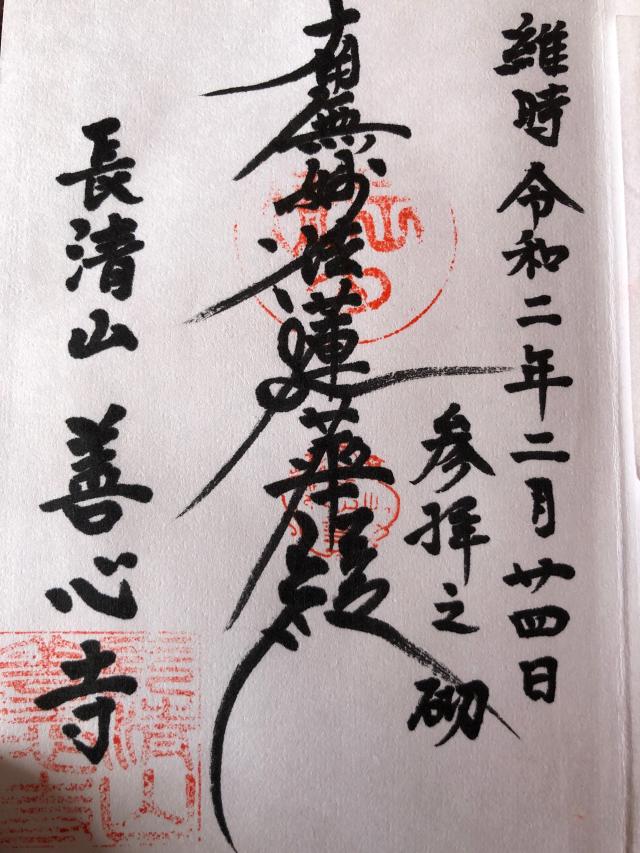 維時令和二年二月廿四日
参拝之砌
南無妙法蓮華経
長清山善心寺